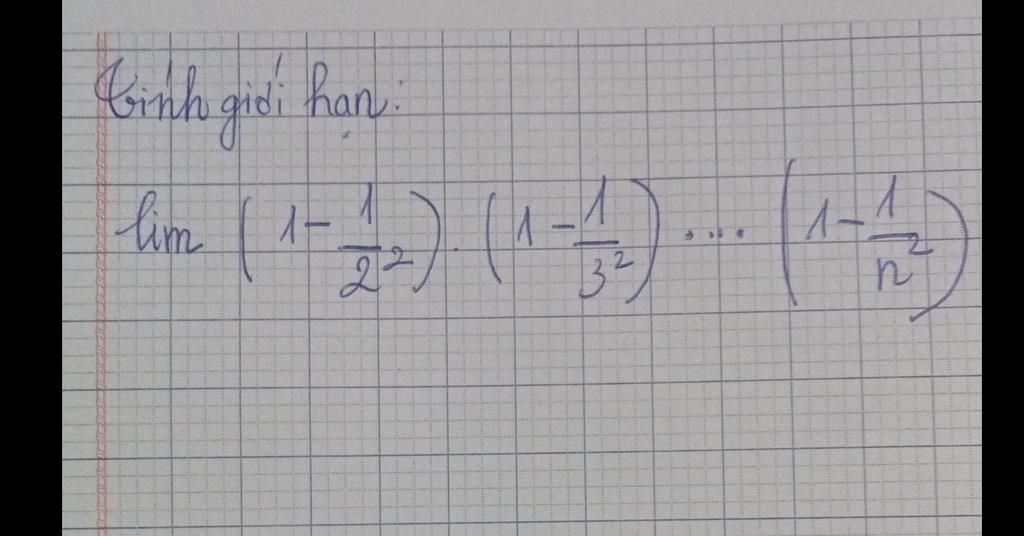 tính giới hạn:
lim (1 - 1/2²) . (1 - 1/3²) .... (1 - 1/n²)